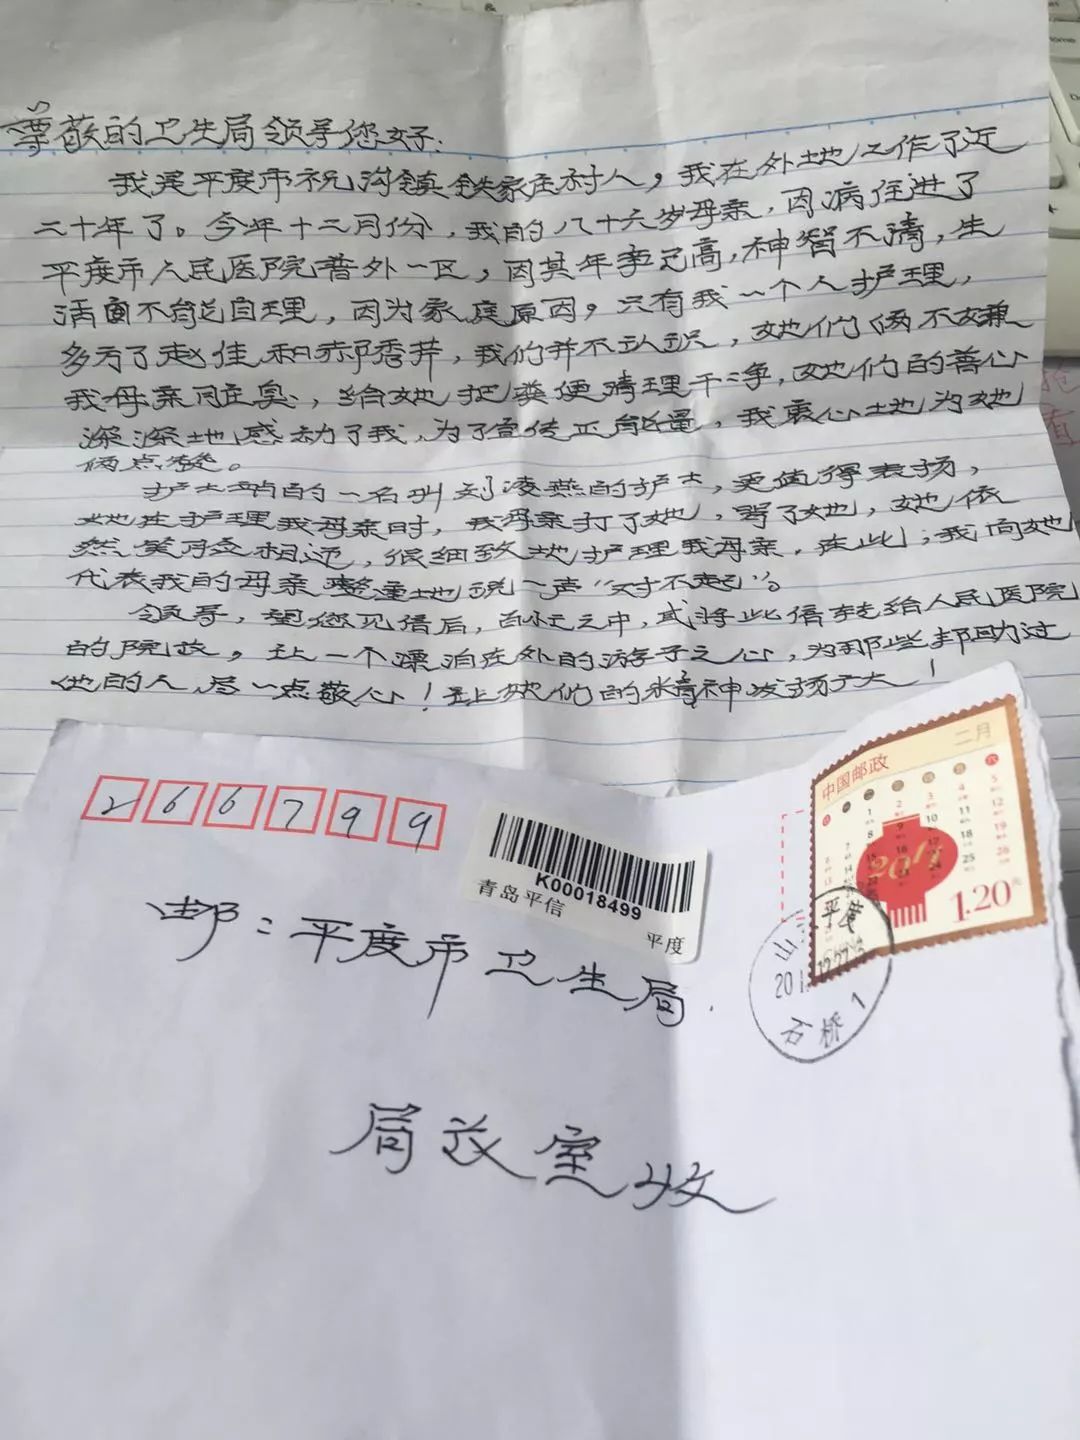 尊敬的卫生局领导您好:
我是平度市祝沟镇铁家庄村人,我在外地工作了近
二十年了。今年十二月份,我的八十六岁母亲,因病住进了
平度市人民医院普外一区,因其年事已高,神智不清,生
活面不能自理,因为家庭原因,只有我一个人护理,
多亏了赵佳和郝秀芹,我们并不认识,她们俩不嫌
我母亲脏臭,给她把粪便清理干净,她们的善心
深深地感动了我,为了宣传正能量,我衷心地为她
俩点赞。
护士站的一名叫刘凌燕的护士,更值得表扬,
她在护理我母亲时,我母亲打了她,骂了她,她依
然笑脸相迎,很细致地护理我母亲,在此;我向她
代表我的母亲郑重地说一声“对不起”。
领导,望您见信后,百忙之中,或将此信转给人民医院
的院政,让一个漂泊在外的游子之心,为那些帮助过
他的人,尽一点敬心!让她们的精神发扬广大!
266799
邮:平度市卫生局.
局政室收
K00018499
青岛平信
平度
中国邮政
二月
2011
1.20元
山
平度
石桥 1